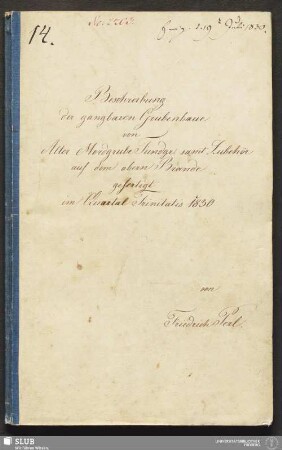 14.
Beschreibung
der gangbaren Grubenbaue
von
Alter Mordgrube Fundgr. samt Zubehör
auf dem obern Brande
gefertigt
im Quartal Trinitatis 1830
von
Friedrich
SLUB
Wir führen Wissen.
UNIVERSITÄTSBIBLIOTHEK
FREIBERG